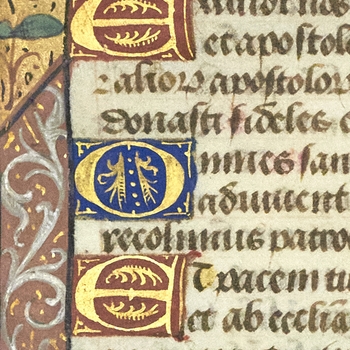 et apostolo
& alior apostolor
donasti fideles
Omnes san
adiuuent
recolimus patro
Et pacem tu
et ab eccl̄ia